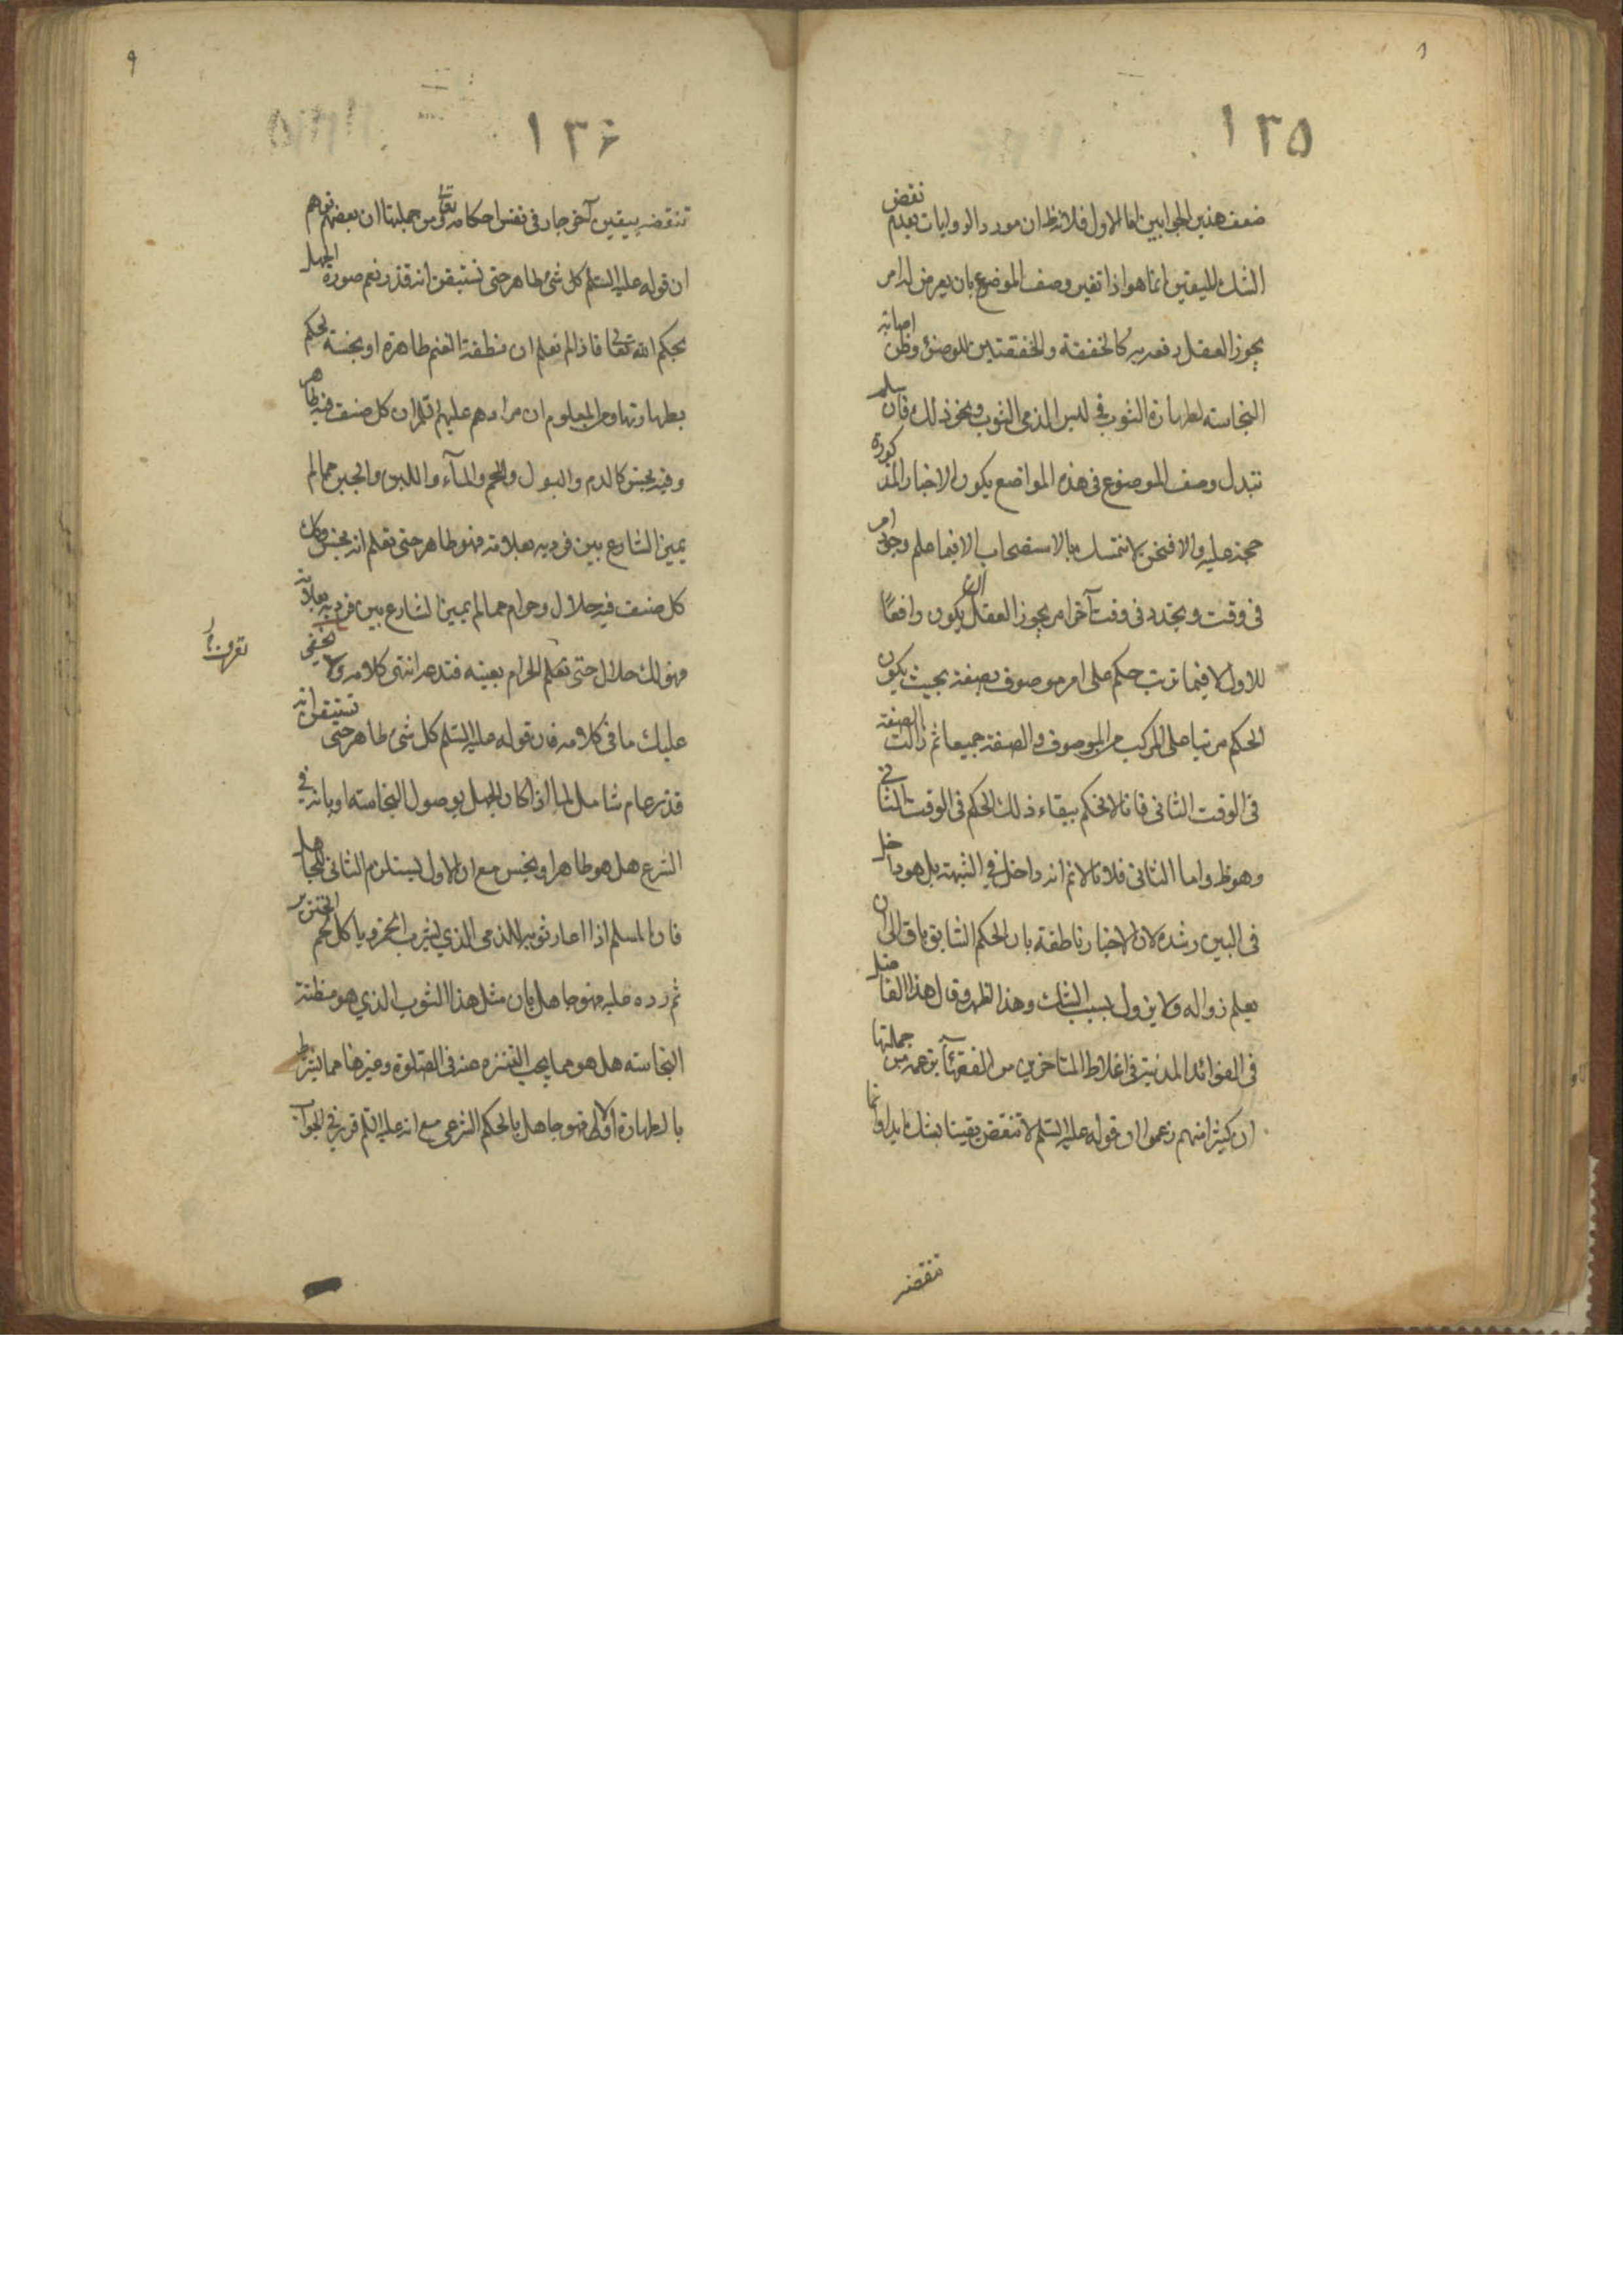 ١٣٥
ضعف هذين الجوابين اما الاول فلانه ظ ان مورد الروايات بعدم نقض
الشك لليقين انما هو اذا تغير وصف الموضوع بان يعرض له امر
يجوز العقل رفعه به كالخفقة والخفقتين للوضوء وظن اصابة
النجاسة لطهارة الثوب في لبس الذمي الثوب ونحو ذلك فان سلم
تبدل وصف الموضوع في هذه المواضع يكون الاخبار المذكورة
حجة عليه والا فنحن لا نتمسك بالاستصحاب الا فيما علم وجود امر
في وقت وتجدد في وقت آخر امر يجوز العقل ان يكون رافعا
للاول لا فيما ترتب حكم على امر موصوف بصفة بحيث يكون
الحكم مرتبا على المركب من الموصوف والصفة جميعا ثم زالت الصفة
في الوقت الثاني فانا لا نحكم ببقاء ذلك الحكم في الوقت الثاني
وهو ظ واما الثاني فلانا لا نم انه داخل في الشبهة بل هو داخل
في البين رشده لان الاخبار ناطقة بان الحكم السابق باق الى ان
يعلم زواله ولا يزول بسبب الشك وهذا اظهر وقال هذا الفاضل
في الفوائد المدنية في اغلاط المتاخرين من الفقهآء بزعمه من جملتها
ان كثيرا منهم زعموا ان قوله عليه السلم لا تنقض يقينا بشك ابدا وانما
تنقضه
١٣۶
٩
تنقضه بيقين آخر جار في نفس احكامه تعالى ومن جملتها ان بعضهم توهم
ان قوله عليه السلم كل شيء طاهر حتى تستيقن انه قذر نعم صورة الجهل
بحكم الله تعالى فاذا لم نعلم ان نطفة الغنم طاهرة او نجسة نحكم
بطهارتها ومن المعلوم ان مرادهم عليهم السلم ان كل صنف فيه طاهر
وفيه نجس كالدم والبول واللحم والمآء واللبن والجبن مما لم
يميز الشارع بين فرديه بعلامة فهو طاهر حتى تعلم انه نجس وكذلك
كل صنف فيه حلال وحرام مما لم يميز الشارع بين فرديه بعلامة
فهو لك حلال حتى تعلم الحرام بعينه فتدعه انتهى كلامه ولا يخفى
عليك ما في كلامه فان قوله عليه السلم كل شيء طاهر حتى تستيقن انه
قذر عام شامل لما اذا كان الجهل بوصول النجاسة او بانه في
الشرع هل هو طاهر او نجس مع ان الاول يستلزم الثاني للجاهل
فان المسلم اذا اعار ثوبه للذمي الذي يشرب الخمر وياكل لحم الخنزير
ثم رده عليه فهو جاهل بان مثل هذا الثوب الذي هو مظنة
النجاسة هل هو مما يجب التنزه عنه في الصلوة وغيرها مما يشترط
بالطهارة او لا فهو جاهل بالحكم الشرعي مع انه عليه السلم قرر في الجواب